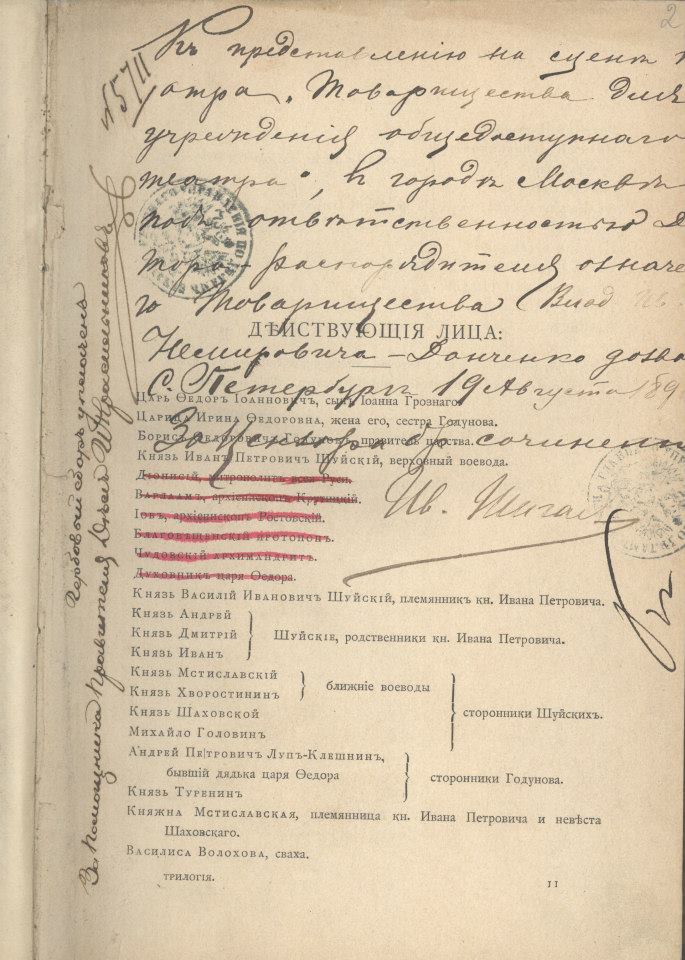 2
№ 5711
Къ представленію на сценѣ
атра „Товарищества для
учрежденія общедоступнаго
театра“, въ городѣ Москвѣ
подъ отвѣтственностью
распорядителя означе
го Товарищества (Влад. Ив.
ДѢЙСТВУЮЩІЯ ЛИЦА:
Немировича-Данченко дозво
С. Петербургъ 19 Августа 189
ЦАРЬ ѲЕДОРЪ ІОАННОВИЧЪ, сынъ Іоанна Грознаго.
ЦАРИЦА ИРИНА ѲЕДОРОВНА, жена его, сестра Годунова.
БОРИСЪ ѲЕДОРОВИЧЪ ГОДУНОВЪ, правитель царства.
За Цензора др. сочинен
КНЯЗЬ ИВАНЪ ПЕТРОВИЧЪ ШУЙСКІЙ, верховный воевода.
ДІОНИСІЙ, митрополитъ всея Руси.
ВАРЛААМЪ, архіепископъ Крутицкій.
ІОВЪ, архіепископъ Ростовскій.
БЛАГОВѢЩЕНСКІЙ ПРОТОПОПЪ.
ЧУДОВСКІЙ АРХИМАНДРИТЪ.
ДУХОВНИКЪ царя Ѳедора.
Ив.
КНЯЗЬ ВАСИЛІЙ ИВАНОВИЧЪ ШУЙСКІЙ, племянникъ кн. Ивана Петровича.
КНЯЗЬ АНДРЕЙ
КНЯЗЬ ДМИТРІЙ
КНЯЗЬ ИВАНЪ
ШУЙСКІЕ, родственники кн. Ивана Петровича.
КНЯЗЬ МСТИСЛАВСКІЙ
КНЯЗЬ ХВОРОСТИНИНЪ
ближніе воеводы
КНЯЗЬ ШАХОВСКОЙ
МИХАЙЛО ГОЛОВИНЪ
сторонники Шуйскихъ.
АНДРЕЙ ПЕТРОВИЧЪ ЛУПЪ-КЛЕШНИНЪ,
бывшій дядька царя Ѳедора
КНЯЗЬ ТУРЕНИНЪ
сторонники Годунова.
КНЯЖНА МСТИСЛАВСКАЯ, племянница кн. Ивана Петровича и невѣста
Шаховскаго.
ВАСИЛИСА ВОЛОХОВА, сваха.
ТРИЛОГІЯ.
11
Гербовый сборъ уплоченъ
За Помощника Правителя Дѣлъ